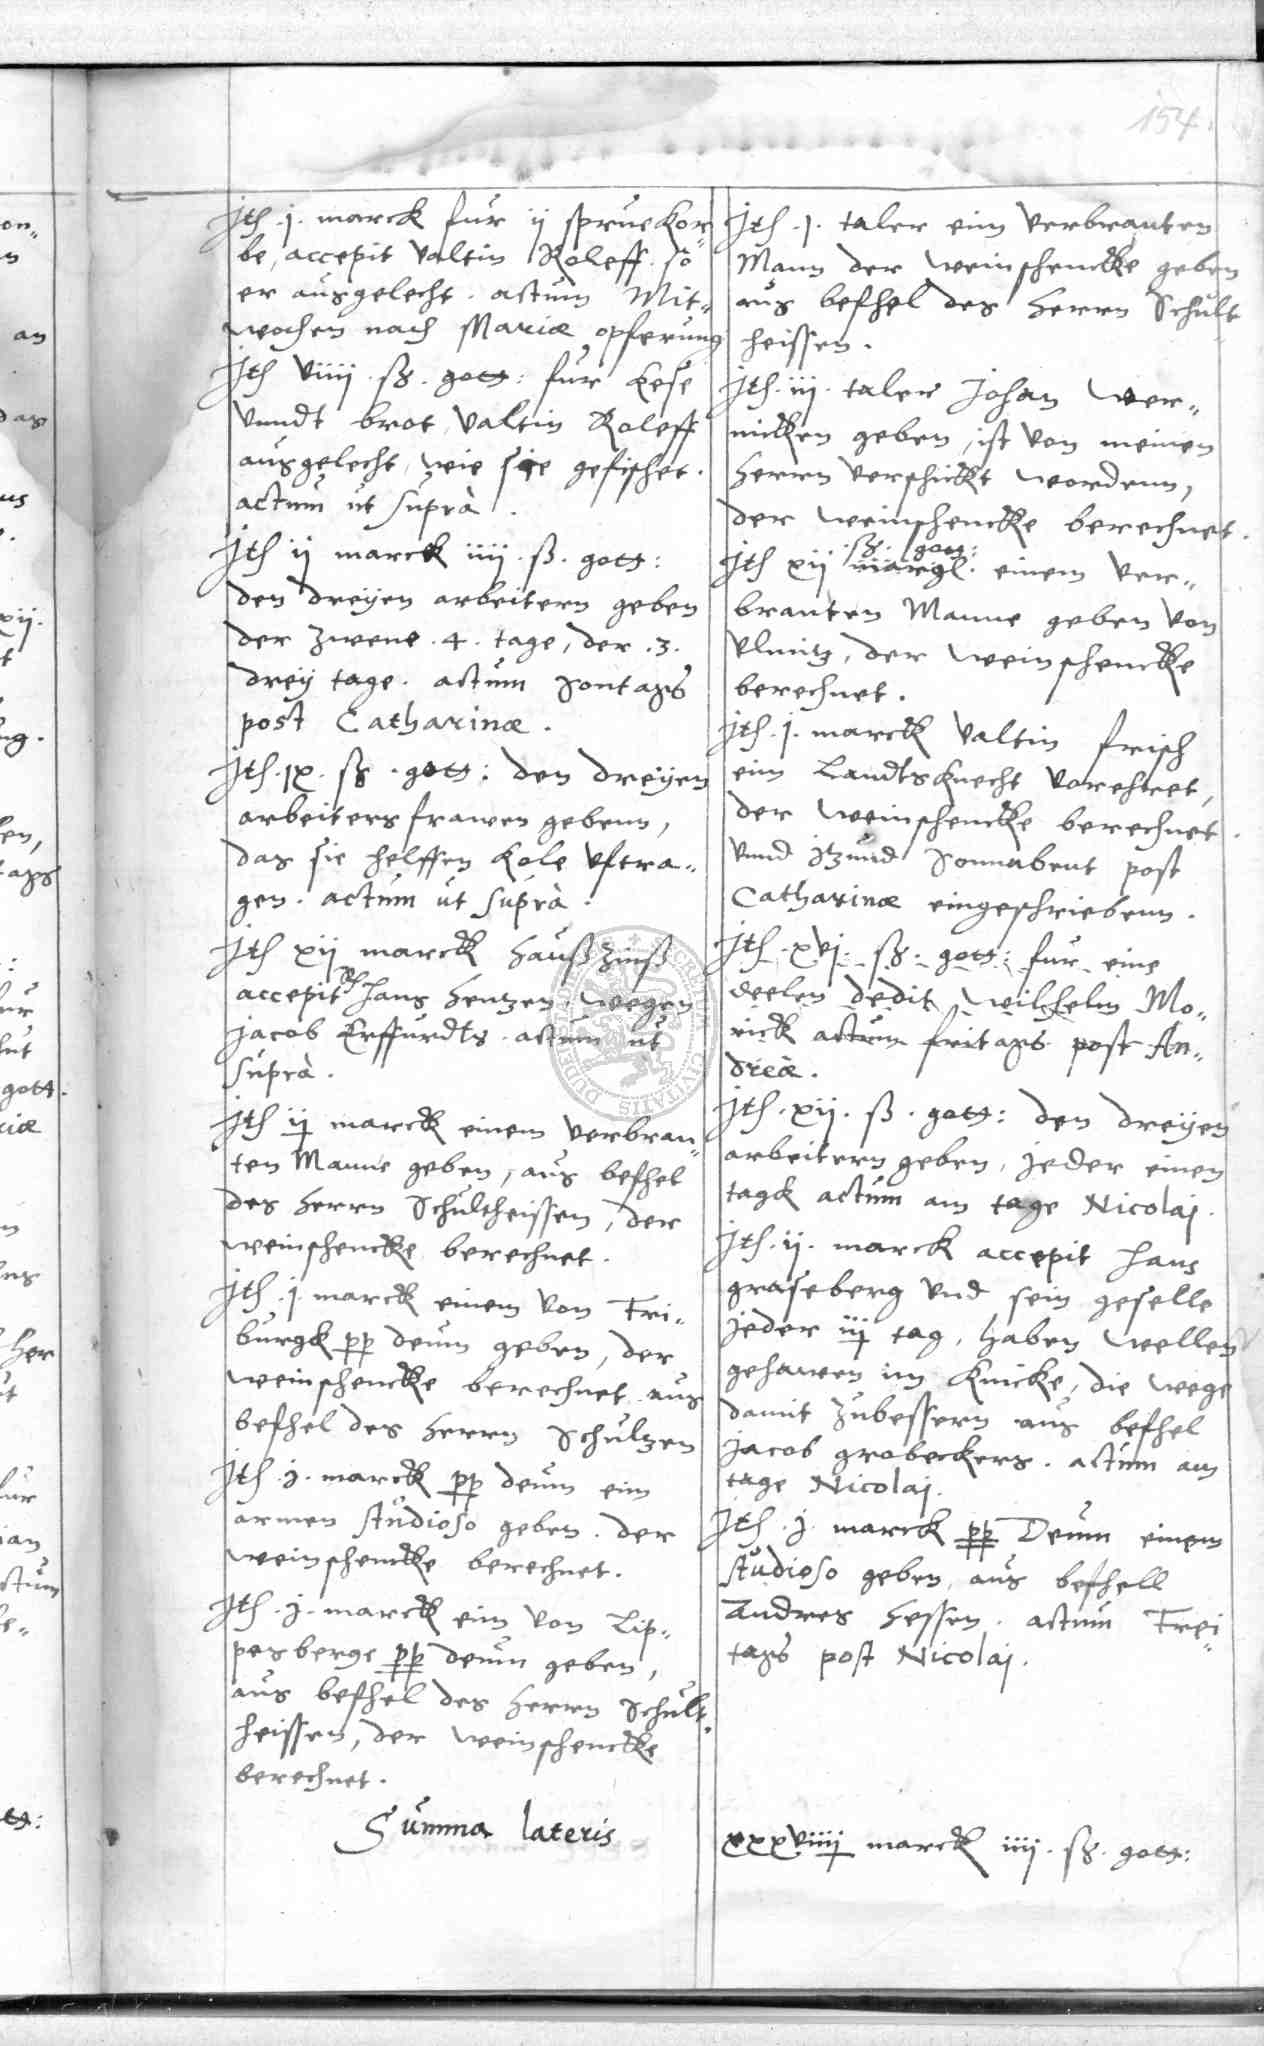 154.
Jth .j. marck fur ij spruekor„
be, accepit Valtin Roleff. so
er ausgelecht. actum Mit„
wochen nach Mariæ opferung
Jth viiij. ß. gott: fur kese
vnndt brot, Valtin Roleff
ausgelecht, wie sie gefischet.
actum ut suprà.
Jth ij marck iiij. ß. gott:
den dreyen arbeitern geben
der zwene .4. tage, der .3.
drey tage. actum Sontags
post Catharinæ.
Jth. ix. ß. gott: den dreyen
arbeiters frawen gebenn,
das sie helffen kole vftra„
gen. actum ut suprà.
Jth xij marck haußzinß
accepit Hans Hentzen. wegen
Jacob Erffurdts. actum ut
suprà.
Jth ij marck einem verbran„
ten Manne geben, aus befhel
des Herrn Schultheissen, der
weinschencke berechnet.
Jth .j. marck einem von Tri„
burgk pp deum geben, der
weinschencke berechnet aus
befhel des Herrn Schultzen
Jth .j. marck pp deum eim
armen studioso geben. der
weinschencke berechnet.
Jth .j. marck eim von Lip„
pesberge pp deum geben,
aus befhel des Herrn Schult„
heissen, der weinschencke
berechnet.
Summa lateris
Jth .j. taler eim verbranten
Mann der weinschencke geben
aus befhel des Herrn Schult„
heissen.
Jth. iij. taler Johan Wer„
nicken geben, ist von meinen
Herrn verschickt wordenn,
der weinschencke berechnet.
ß. gott:
Jth xij margl. einem ver„
branten Manne geben von
Vlmitz, der weinschencke
berechnet.
Jth .j. marck Valtin Frisch
eim Landtsknecht vorehret,
der weinschencke berechnet.
vnnd jtzund Sonnabent post
Catharinæ eingeschriebenn.
Jth. xvj. ß. gott: fur eine
deelen dedit Wilhelm Mo„
rick actum freitags post An„
dreæ.
Jth. xij. ß. gott: den dreyen
arbeitern geben, jeder einen
tagk actum am tage Nicolaj.
Jth. ij. marck accepit Hans
Graseberg vnd sein geselle
jeder iij tag, haben wellen
gehawen im Knicke, die wege
damit zubessern aus befhel
Jacob Grobeckers. actum am
tage Nicolaj.
Jth .j. marck pp Deum einem
studioso geben aus befhell
Andres Hessen. actum Frei„
tags post Nicolaj.
xxxviiij marck iiij. ß. gott: